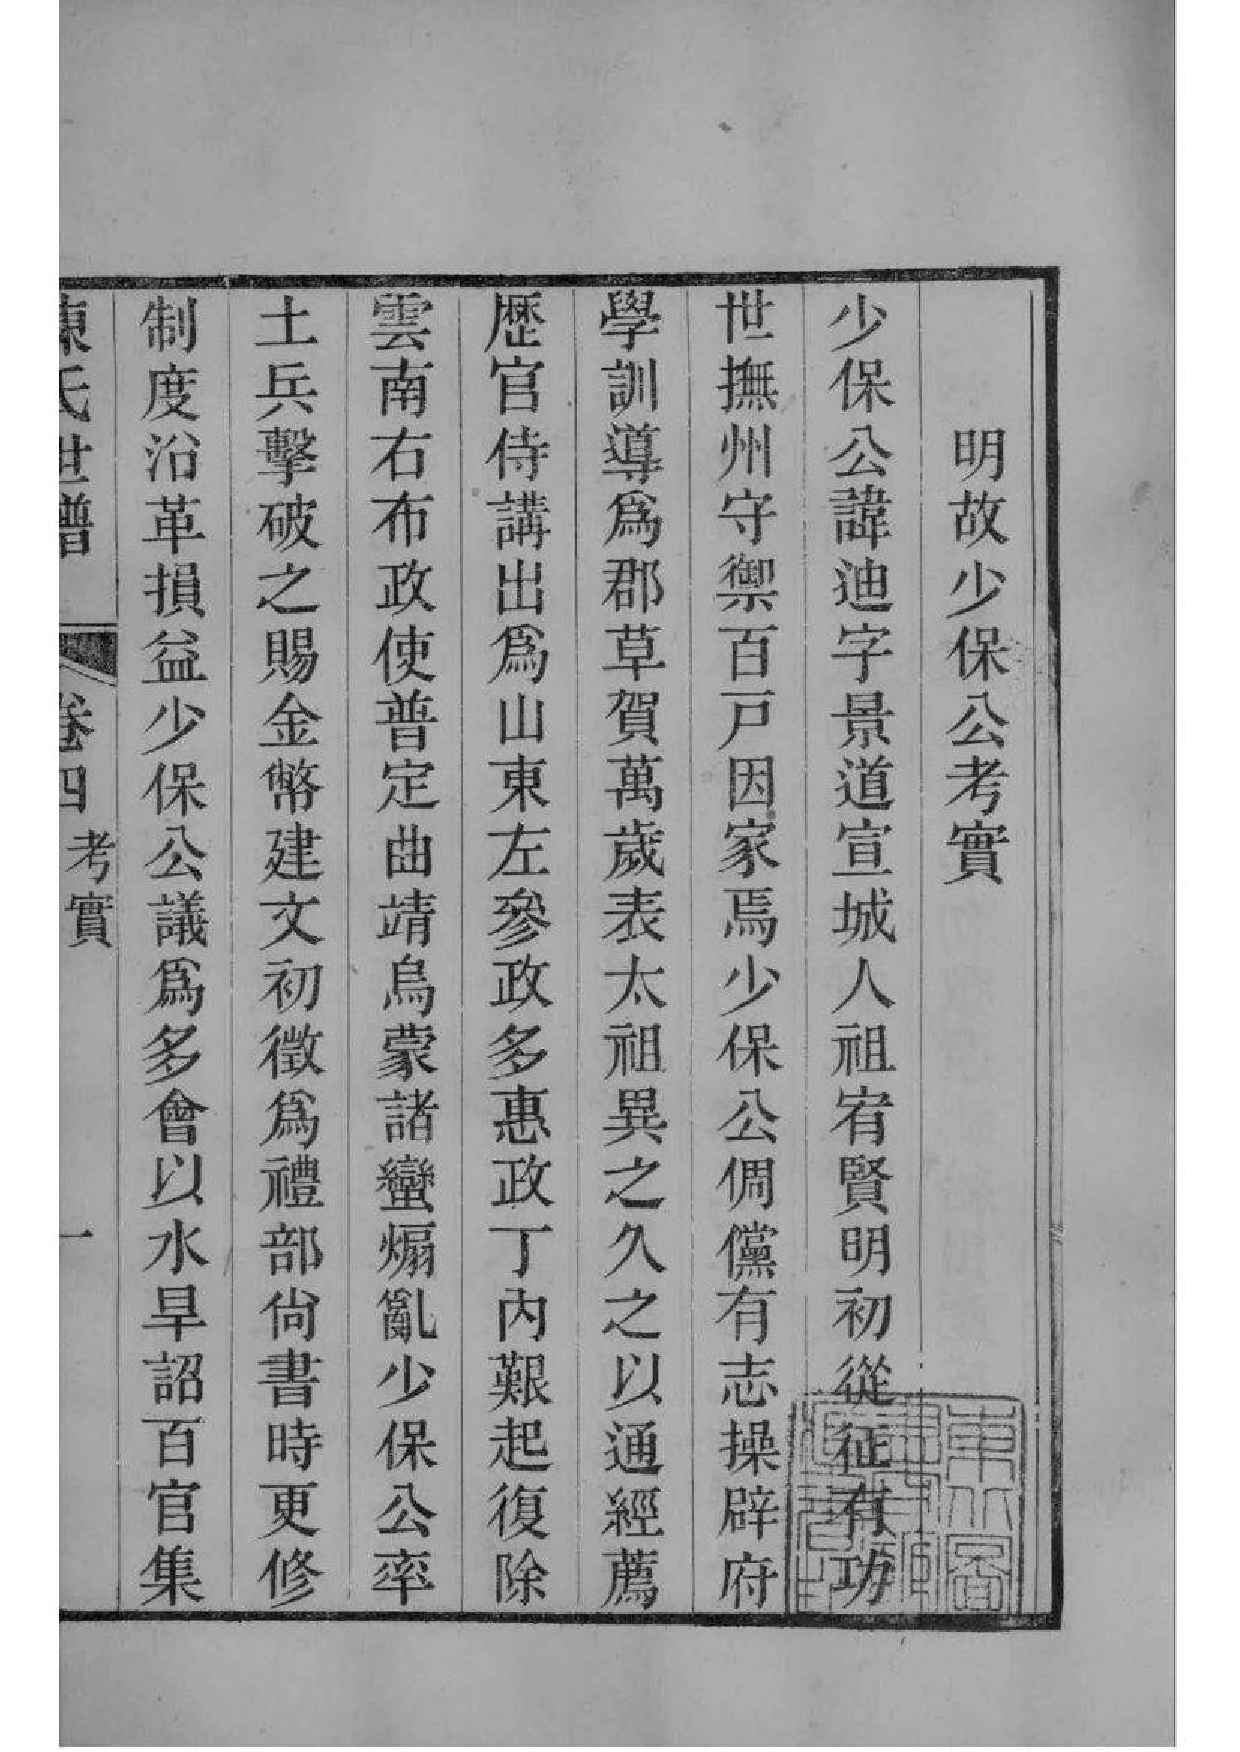 明故少保公考實
少保公諱迪字景道宣城人祖宥賢明初從征有功
世撫州守禦百戸因家焉少保公倜儻有志操辟府
學訓導爲郡草賀萬歲表太祖異之久之以通經薦
歷官侍講出爲山東左參政多惠政丁內艱起復除
雲南右布政使普定曲靖烏蒙諸蠻煽亂少保公率
土兵擊破之賜金幣建文初徵爲禮部尙書時更修
制度沿革損益少保公議爲多會以水旱詔百官集
陳氏世譜 卷四 考實 一